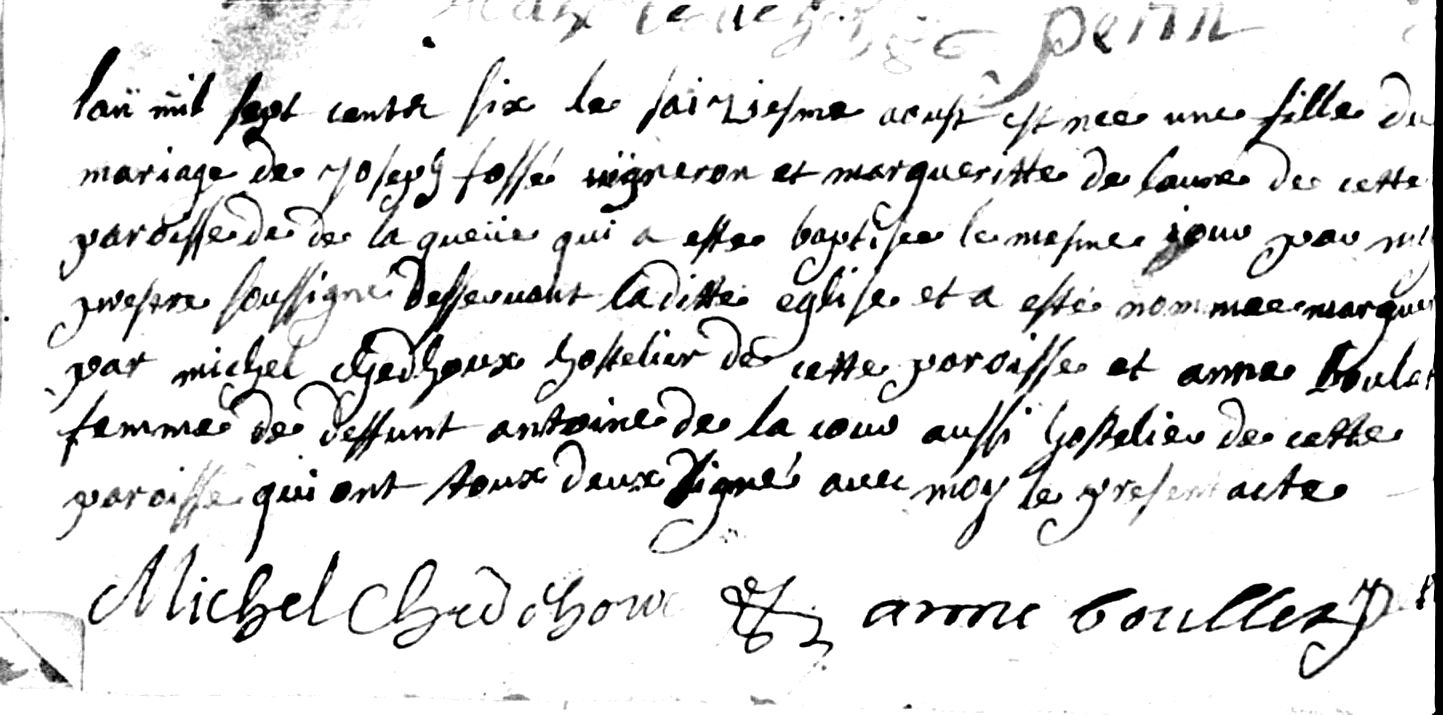 perin
lan mil sept cents six le saiziesme aoust est nee une fille du
mariage de joseph fossé vigneron et margueritte de laune de cette
paroisse de de la queüe qui a este baptisee le mesme jour par m
prestre soussigné desservant laditte eglise et a esté nommee margue
par michel chedhoux hostelier de cette paroisse et anne boulet
femme de deffunt antoine de la cour aussi hostelier de cette
paroisse qui ont toux deux signé avec moy le present acte
Michel Chedehoux anne boullet